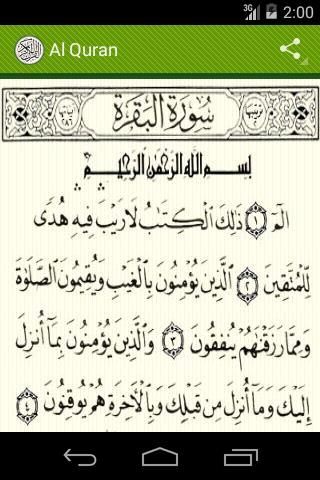 3G 2:00
Al Quran
سُورَةُ الْبَقَرَةِ
بِسْمِ اللَّهِ الرَّحْمَٰنِ الرَّحِيمِ
الٓمٓ ١ ذَٰلِكَ الْكِتَٰبُ لَا رَيْبَ فِيهِ هُدًى
لِّلْمُتَّقِينَ ٢ الَّذِينَ يُؤْمِنُونَ بِالْغَيْبِ وَيُقِيمُونَ الصَّلَوٰةَ
وَمِمَّا رَزَقْنَٰهُمْ يُنفِقُونَ ٣ وَالَّذِينَ يُؤْمِنُونَ بِمَآ أُنزِلَ
إِلَيْكَ وَمَآ أُنزِلَ مِن قَبْلِكَ وَبِالْءَاخِرَةِ هُمْ يُوقِنُونَ ٤